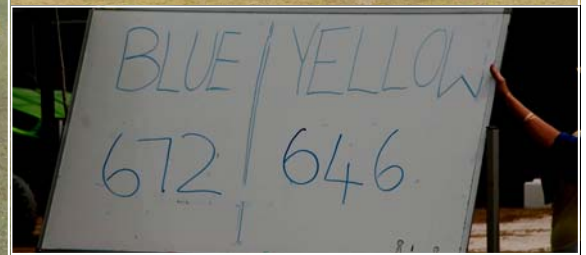 BLUE | YELLOW
672 646